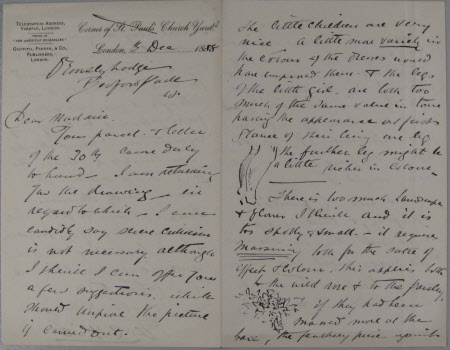 TELEGRAPHIC ADDRESS,
LONDON.
GRIFFITH, FARRAN, & CO.
PUBLISHERS,
LONDON.
Corner of St Paul's Church Yard
London, Dec 1888
Bedford Park
W.
Dear Madam.
Your parcel & letter
of the 30th came duly
to hand. I am returning
you the drawing – in
regard to which – I can
candidly say severe criticism
is not necessary although
I think I can offer you
a few suggestions which
should improve the picture
if carried out.
The little children are very
nice a little more variety in
the colour of the dresses would
have improved them & the legs
of the little girl are both too
much of the same value in tone
having the appearance at first
glance of their being one leg
the further leg might be
a little richer in colour
There is too much landscape
& flower I think and it is
too spotty & small – it requires
Massing both for the sake of
effect & colour, this applies both
to the wild rose & to the parsley,
if they had been
massed more at the
base, the feathery